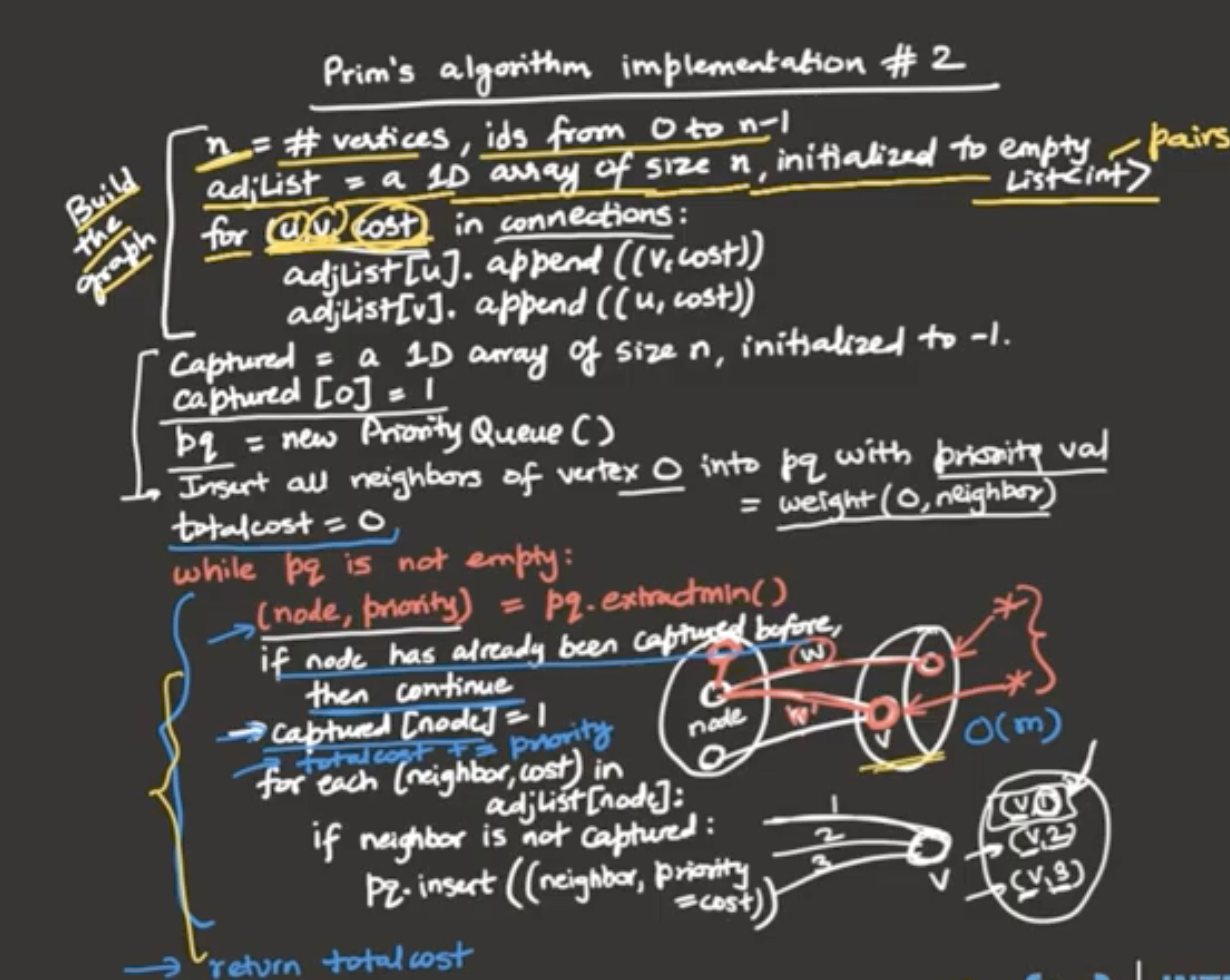 Prim's algorithm implementation # 2
Build the graph
n = # vertices, ids from 0 to n-1
adjList = a 1D array of size n, initialized to empty List<int>
pairs
for (u,v, cost) in connections:
adjList[u]. append ((v, cost))
adjList[v]. append ((u, cost))
Captured = a 1D array of size n, initialized to -1.
captured [0] = 1
pq = new PriorityQueue()
Insert all neighbors of vertex 0 into pq with priority val
= weight(0, neighbor)
totalcost = 0
while pq is not empty:
(node, priority) = pq.extractmin()
if node has already been captured before,
then continue
captured [node] = 1
totalcost += priority
for each (neighbor, cost) in
adjList[node]:
if neighbor is not captured:
pq.insert ((neighbor, priority
=cost))
return totalcost
w
node
w'
v
O(m)
1
2
3
v
(v,1)
(v,2)
(v,3)